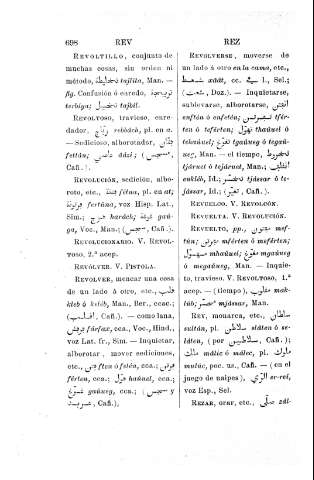 698 REV REZ
REVOLTILLO, conjunto de
muchas cosas, sin orden ni
método, تخليطة tajlita, Man. —
fig. Confusión ó enredo,
terbiga; تخبيل tajbil.
REVOLTOSO, travieso, enre-
dador, رباج rebbách, pl. en e.
— Sedicioso, alborotador, فتان
fettán; عاصي âási; (سجيس,
Cañ.).
REVOLUCIÓN, sedición, albo-
roto, etc., فتنة fétna, pl. en at;
فرتونة fertúna, voz Hisp. Lat.,
Sim.; هرج harách; غوغة gaú-
ga, Voc., Man.; (سجس, Cañ.).
REVOLUCIONARIO. V. REVOL-
TOSO, 2.ª acep.
REVÓLVER. V. PISTOLA.
REVOLVER, menear una cosa
de un lado á otro, etc., قلب
kleb ó keléb, Man., Ber., ccac.;
(اقلب, Cañ.). — como lana,
فرفش fárfax, cca., Voc., Hind.,
voz Lat. fr., Sim. — Inquietar,
alborotar, mover sediciones,
etc., فتن ften ó fetén, cca.; فرتن
férten, cca.; هول haúuel, cca.;
غوغ gaúueg, cca.; (سجس y
Cañ.).
REVOLVERSE, moverse de
un lado á otro en la cama, etc.,
xáât, cc. ع 1., Sel.;
Doz.). — Inquietarse,
sublevarse, alborotarse, افتتن
enftén ó enfetén; تفرتن tfér-
ten ó teférten; تهول thaúuel ó
tehaúuel; تغوغ tgaúueg ó tegaú-
ueg, Man. — el tiempo, تخروط
tjáruet ó tejáruet, Man.; انقلب
enkléb, Id.; تخصر tjássar ó te-
jássar, Id.; (تغير, Cañ.).
REVUELCO. V. REVOLCÓN.
REVUELTA. V. REVOLUCIÓN.
REVUELTO, pp., مفتون mef-
tún; مفرتن mférten ó meférten;
مهول mhaúuel; مغوغ mgaúueg
ó megaúueg, Man. — Inquie-
to, travieso. V. REVOLTOSO, 1.ª
acep. — (tiempo) مقلوب mak-
lúb; مخصر mjássar, Man.
REY, monarca, etc., سلطان
sultán, pl. سلاطن sláten ó se-
láten, (por سلاطين, Cañ.);
ملك málic ó málec, pl. ملوك
mulúc, poc. us., Cañ. — (en el
juego de naipes), الري er-réi,
voz Esp., Sel.
REZAR, orar, etc., صلى sál-